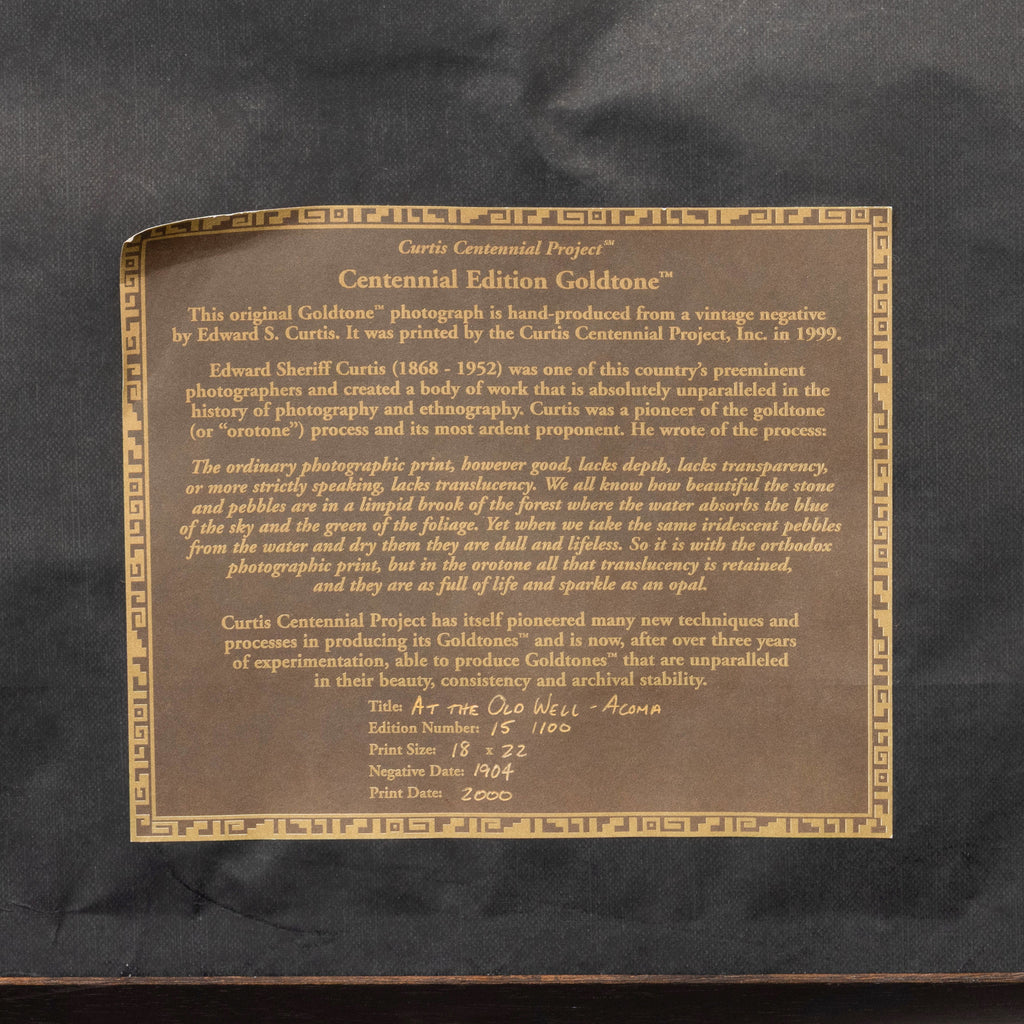 Curtis Centennial Project℠
Centennial Edition Goldtone™
This original Goldtone™ photograph is hand-produced from a vintage negative
by Edward S. Curtis. It was printed by the Curtis Centennial Project, Inc. in 1999.
Edward Sheriff Curtis (1868 - 1952) was one of this country's preeminent
photographers and created a body of work that is absolutely unparalleled in the
history of photography and ethnography. Curtis was a pioneer of the goldtone
(or “orotone”) process and its most ardent proponent. He wrote of the process:
The ordinary photographic print, however good, lacks depth, lacks transparency,
or more strictly speaking, lacks translucency. We all know how beautiful the stone
and pebbles are in a limpid brook of the forest where the water absorbs the blue
of the sky and the green of the foliage. Yet when we take the same iridescent pebbles
from the water and dry them they are dull and lifeless. So it is with the orthodox
photographic print, but in the orotone all that translucency is retained,
and they are as full of life and sparkle as an opal.
Curtis Centennial Project has itself pioneered many new techniques and
processes in producing its Goldtones™ and is now, after over three years
of experimentation, able to produce Goldtones™ that are unparalleled
in their beauty, consistency and archival stability.
Title: AT THE OLD WELL - ACOMA
Edition Number: 15 /100
Print Size: 18 x 22
Negative Date: 1904
Print Date: 2000